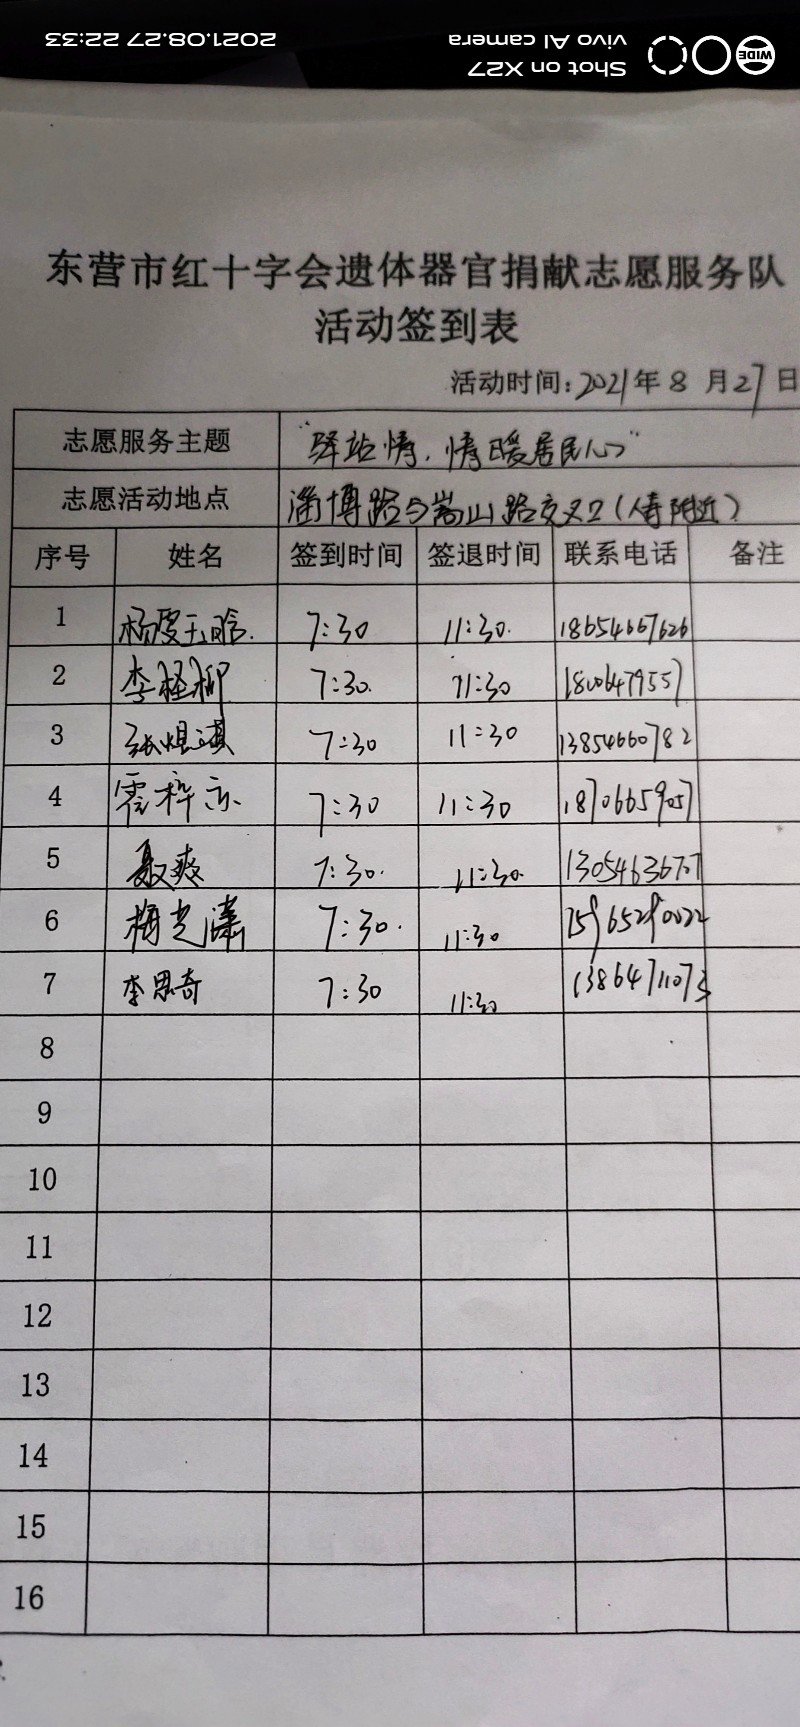 2021.08.27 22:33
Shot on X27
vivo AI camera
WIDE
东营市红十字会遗体器官捐献志愿服务队
活动签到表
活动时间：2021年8月27日
志愿服务主题 "驿站情，情暖居民心"
志愿活动地点 淄博路与嵩山路交叉口（ 附近）
序号 姓名 签到时间 签退时间 联系电话 备注
1 杨雯玉晗 7:30 11:30 18654667626
2 李柽柳 7:30 11:30 18006479557
3 张煜淇 7:30 11:30 13854660782
4 7:30 11:30 18706659057
5 聂爽 7:30 11:30
6 梅艺潇 7:30 11:30
7 李思奇 7:30 11:30 13864711073
8
9
10
11
12
13
14
15
16